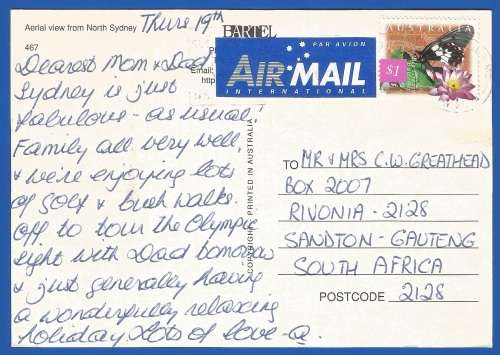 Aerial view from North Sydney
467
Thurs 19th
BARTEL
Email:
Dearest Mom & Dad
Sydney is just
fabulous - as usual!
Family all very well,
& we're enjoying lots
of golf & bush walks.
Off to tour the Olympic
sight with Dad tomorrow
& just generally having
a wonderfully relaxing
holiday. Lots of love -
COPYRIGHT. PRINTED IN AUSTRALIA
PAR AVION
AIR MAIL
INTERNATIONAL
AUSTRALIA
$1
TO MR & MRS C.W. GREATHEAD
BOX 2007
RIVONIA - 2128
SANDTON - GAUTENG
SOUTH AFRICA
POSTCODE 2128